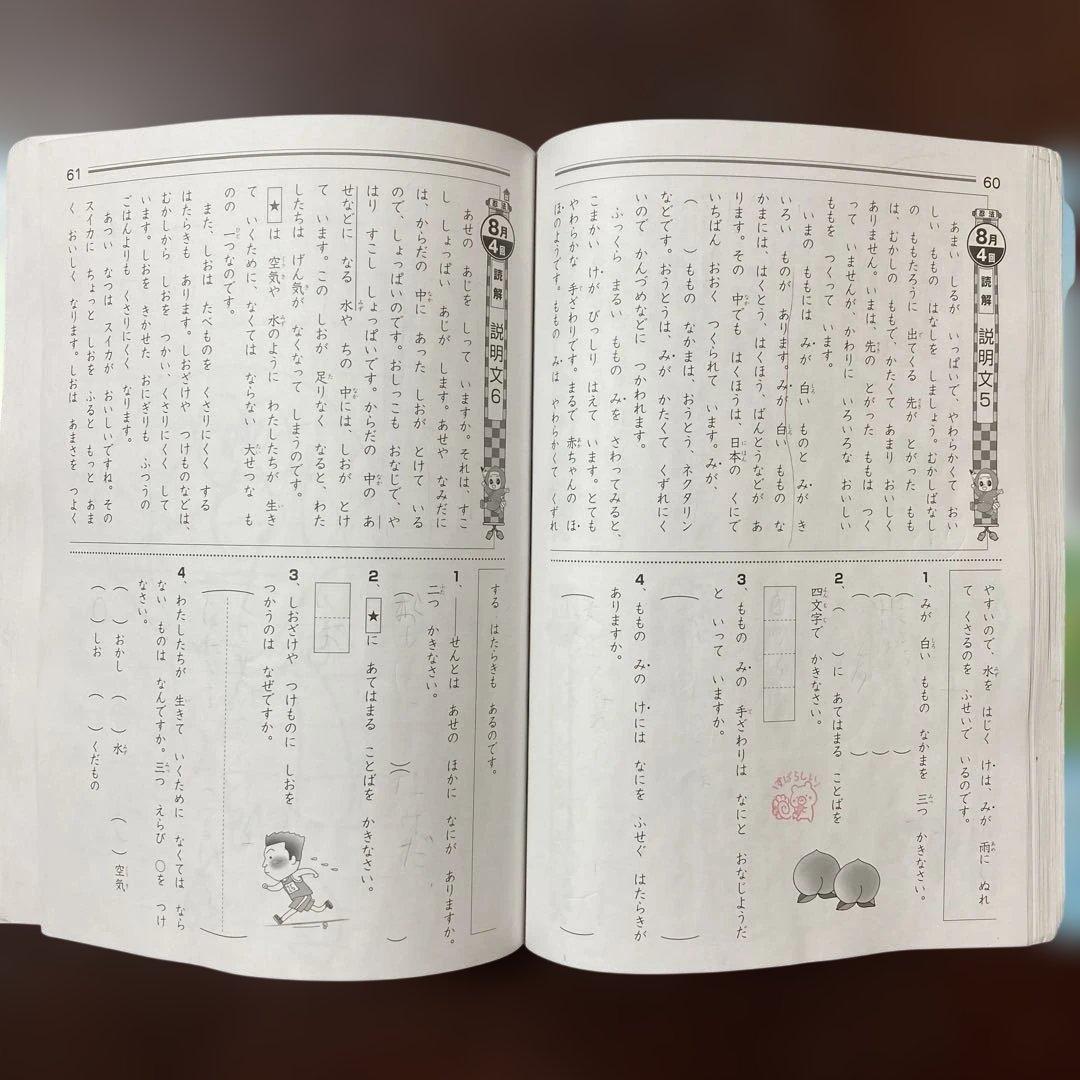 60
忍法
8月
4回
読解
説明文5
あまい しるが いっぱいで、やわらかくて おい
しい ももの はなしを しましょう。むかしばなし
の ももたろうに 出てくる 先が とがった もも
は、むかしの ももで、かたくて あまり おいしく
ありません。いまは、先の とがった ももは つく
って いませんが、かわりに いろいろな おいしい
ももを つくって います。
いまの ももには みが 白い ものと みが き
いろい ものが あります。みが 白い ももの な
かまには、はくとう、はくほう、ばんとうなどが あ
ります。その 中でも はくほうは、日本の くにで
いちばん おおく つくられて います。みが、
( )ももの なかまは、おうとう、ネクタリン
などです。おうとうは、みが かたくて くずれにく
いので かんづめなどに つかわれます。
ふっくら まるい ももの みを さわってみると、
こまかい けが びっしり はえて います。とても
やわらかな 手ざわりです。まるで 赤ちゃんの ほ
ほのようです。ももの みは やわらかくて くずれ
やすいので、水を はじく けは、みが 雨に ぬれ
て くさるのを ふせいで いるのです。
1、みが 白い ももの なかまを 三つ かきなさい。
( )
( )
( )
2、( )に あてはまる ことばを
四文字で かきなさい。
3、ももの みの 手ざわりは なにと おなじようだ
と いって いますか。
( )
4、ももの みの けには なにを ふせぐ はたらきが
ありますか。
( )
すばらしい
61
忍法
8月
4回
読解
説明文6
あせの あじを しって いますか。それは、すこ
し しょっぱい あじが します。あせや なみだに
は、からだの 中に あった しおが とけて いる
ので、しょっぱいのです。おしっこも おなじで、や
はり すこし しょっぱいです。からだの 中の あ
せなどに なる 水や ちの 中には、しおが とけ
て います。この しおが 足りなく なると、わた
したちは げん気が なくなって しまうのです。
★は 空気や 水のように わたしたちが 生き
て いくために、なくては ならない 大せつな も
のの 一つなのです。
また、しおは たべものを くさりにくく する
はたらきも あります。しおざけや つけものなどは、
むかしから しおを つかい、くさりにくく して
います。しおを きかせた おにぎりも ふつうの
ごはんよりも くさりにくく なります。
あつい なつは スイカが おいしいですね。その
スイカに ちょっと しおを ふると もっと あま
く おいしく なります。しおは あまさを つよく
する はたらきも あるのです。
1、――せんとは あせの ほかに なにが ありますか。
二つ かきなさい。
( )( )
2、★に あてはまる ことばを かきなさい。
3、しおざけや つけものに しおを
つかうのは なぜですか。
( )
4、わたしたちが 生きて いくために なくては なら
ない ものは なんですか。三つ えらび ○を つけ
なさい。
( )おかし ( )水 ( )空気
( )しお ( )くだもの